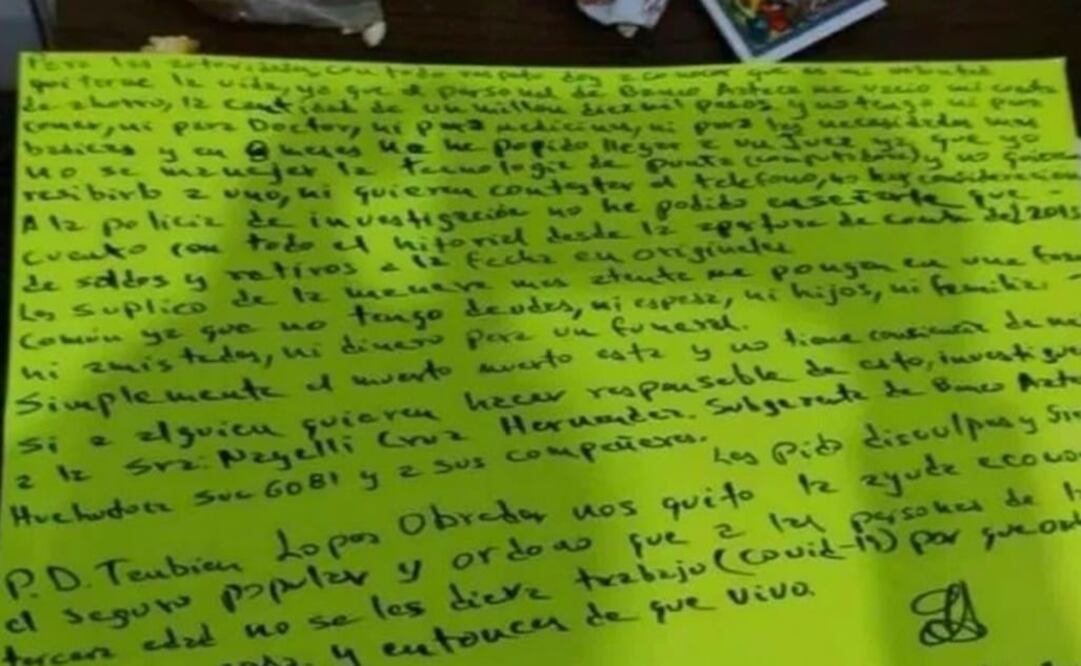 Para las autoridades, con todo respeto doy a conocer que es mi voluntad
quitarme la vida, ya que el personal de Banco Azteca me vacio mi cuenta
de ahorro, la cantidad de un millon diez mil pesos y no tengo ni para
comer, ni para Doctor, ni para medicinas, ni para las necesidades mas
basicas y en meses no he podido llegar a un Juez ya que yo
no se manejar la tecnologia de punta (computadora) y no quieren
resibirlo a uno, ni quieren contestar el telefono, no hay consideracion
A la policia de investigación no he podido enseñarle que
cuento con todo el hitorial desde la apertura de cuenta del 2015
de saldos y retiros a la fecha en originales
Los suplico de la manera mas atenta me pongan en una fosa
común ya que no tengo deudos, ni esposa, ni hijos, ni familia
ni amistades, ni dinero para un funeral.
Simplemente el muerto muerto esta y no tiene conciencia de
Si a alguien quieren hacer responsable de esto, investiguen
a la Sra: Nayelli Cruz Hernandez. Subgerente de Banco Azteca
Huehuetoca Suc 6081 y a sus compañeros.
Les Pido disculpas y
P.D. Tenbien Lopes Obrador nos quito la ayuda
el seguro popular y ordeno que a las personas de la
tercera edad no se les diera trabajo (covid-19) por que
y entonces de que vivo.